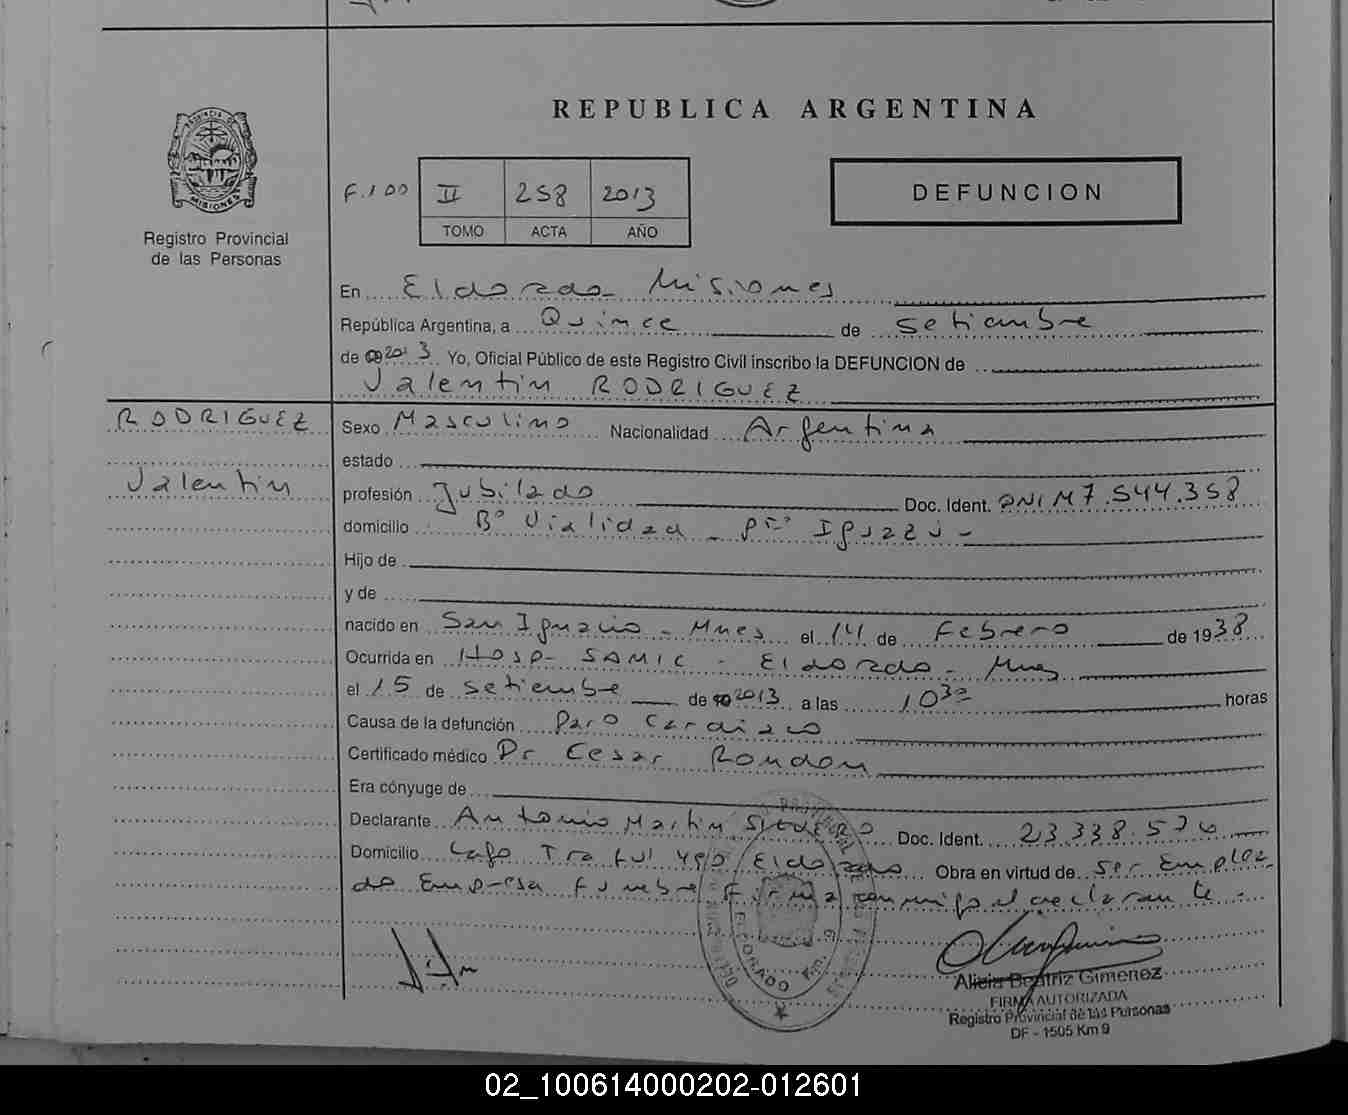 REPUBLICA ARGENTINA
PROVINCIA DE MISIONES
Registro Provincial
de las Personas
F. 100 II 258 2013
TOMO ACTA AÑO
DEFUNCION
En Eldorado Misiones
República Argentina, a Quince de setiembre
de 2013 Yo, Oficial Público de este Registro Civil inscribo la DEFUNCION de
Valentin RODRIGUEZ
RODRIGUEZ
Valentin
Sexo Masculino Nacionalidad Argentina
estado
profesión Jubilado Doc. Ident. DNI M7.544.358
domicilio Bº Vialidad - Pto Iguazú -
Hijo de
y de
nacido en San Ignacio - Mnes el 14 de Febrero de 1938
Ocurrida en Hosp- SAMIC - Eldorado - Mnes
el 15 de setiembre de 2013 a las 10 30 horas
Causa de la defunción Paro Cardiaco
Certificado médico Dr Cesar Rondon
Era cónyuge de
Declarante Antonio Martin Doc. Ident. 23.338.576
Domicilio Eldorado Obra en virtud de Ser Emplea
do Empresa Funebre Firma conmigo el declarante -
ELDORADO Km. 9
Alicia Beatriz Gimenez
FIRMA AUTORIZADA
Registro Provincial de las Personas
DF - 1505 Km 9
02_100614000202-012601